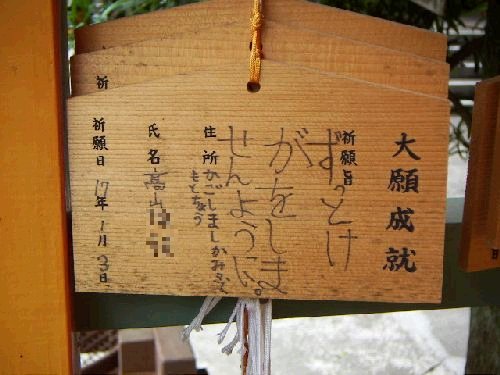 大願成就
祈願旨
ずっとけ
がをしま
せんように。
住所 かごしましかみ
もとちょう
氏名 高山
祈願日 17年1月3日
祈